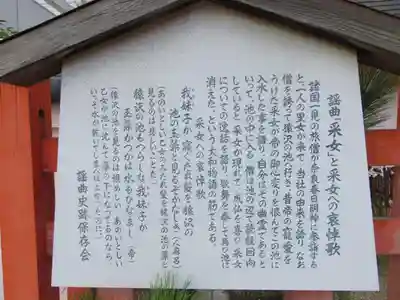 謡曲「采女」と采女への哀悼歌
諸国一見の旅僧が奈良春日明神に参詣する
と、一人の里女が来て、当社の由来を語り、なお
僧を誘って猿沢の池へ行き、昔帝の寵愛を
うけた采女が帝の御心変りを恨んでこの池に
入水した事を語り、自分はその幽霊であると
いって、池の中に入る。僧は池の辺で読経回向
していると、采女が現れて、成仏を喜び、采女
についての逸話を語り、歌舞を奏して再び池に
消えた、という大和物語の筋である。
采女への哀悼歌
我妹子が 寝ぐたれ髪を 猿沢の
池の玉藻と 見るぞかなしき (人麻呂)
(あのいとしい乙女のみだれ髪を猿沢の池の藻と
見るのは悲しいことだ)
猿沢の 池もつらしな 我妹子が
玉藻かつかば 水もひなまし (帝)
(猿沢の池を見るのは恨めしい。あのいとしい
乙女が池に沈んで藻の下になっているのなら
いっそ水が乾いてしまえばよかったのに。)
謡曲史跡保存会